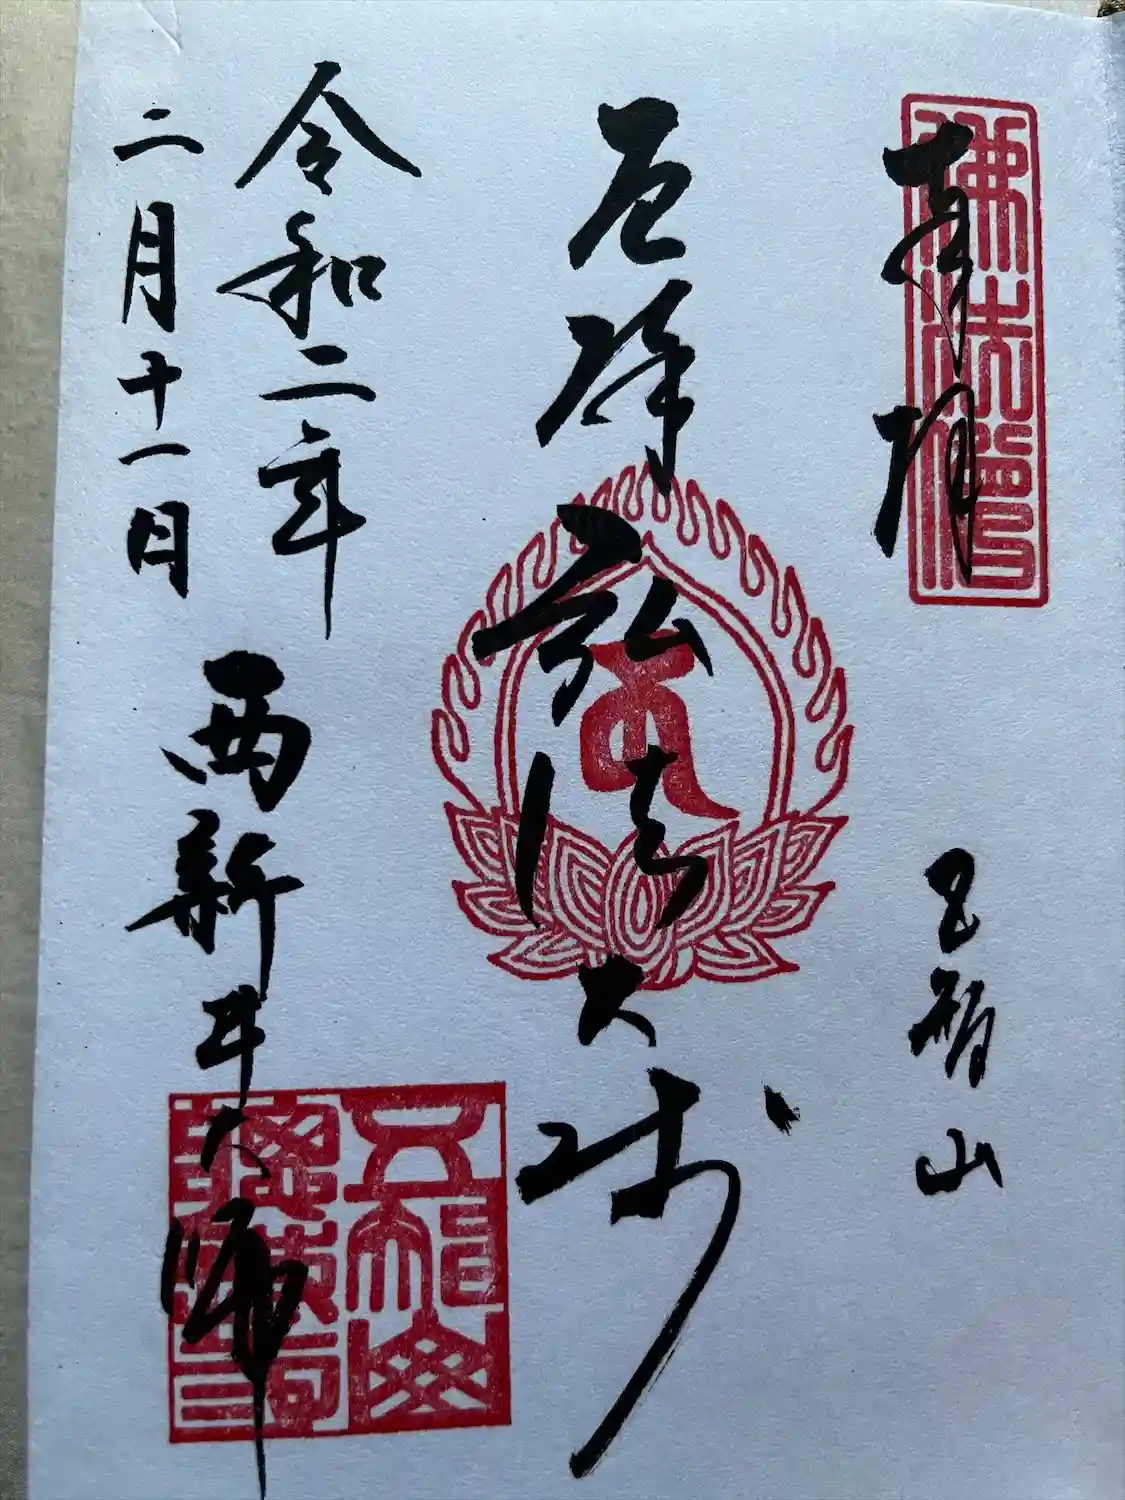 奉拝
佛法僧
五智山
厄除弘法大師
令和二年
二月十一日
西新井大師
五智山
遍照院
總持寺